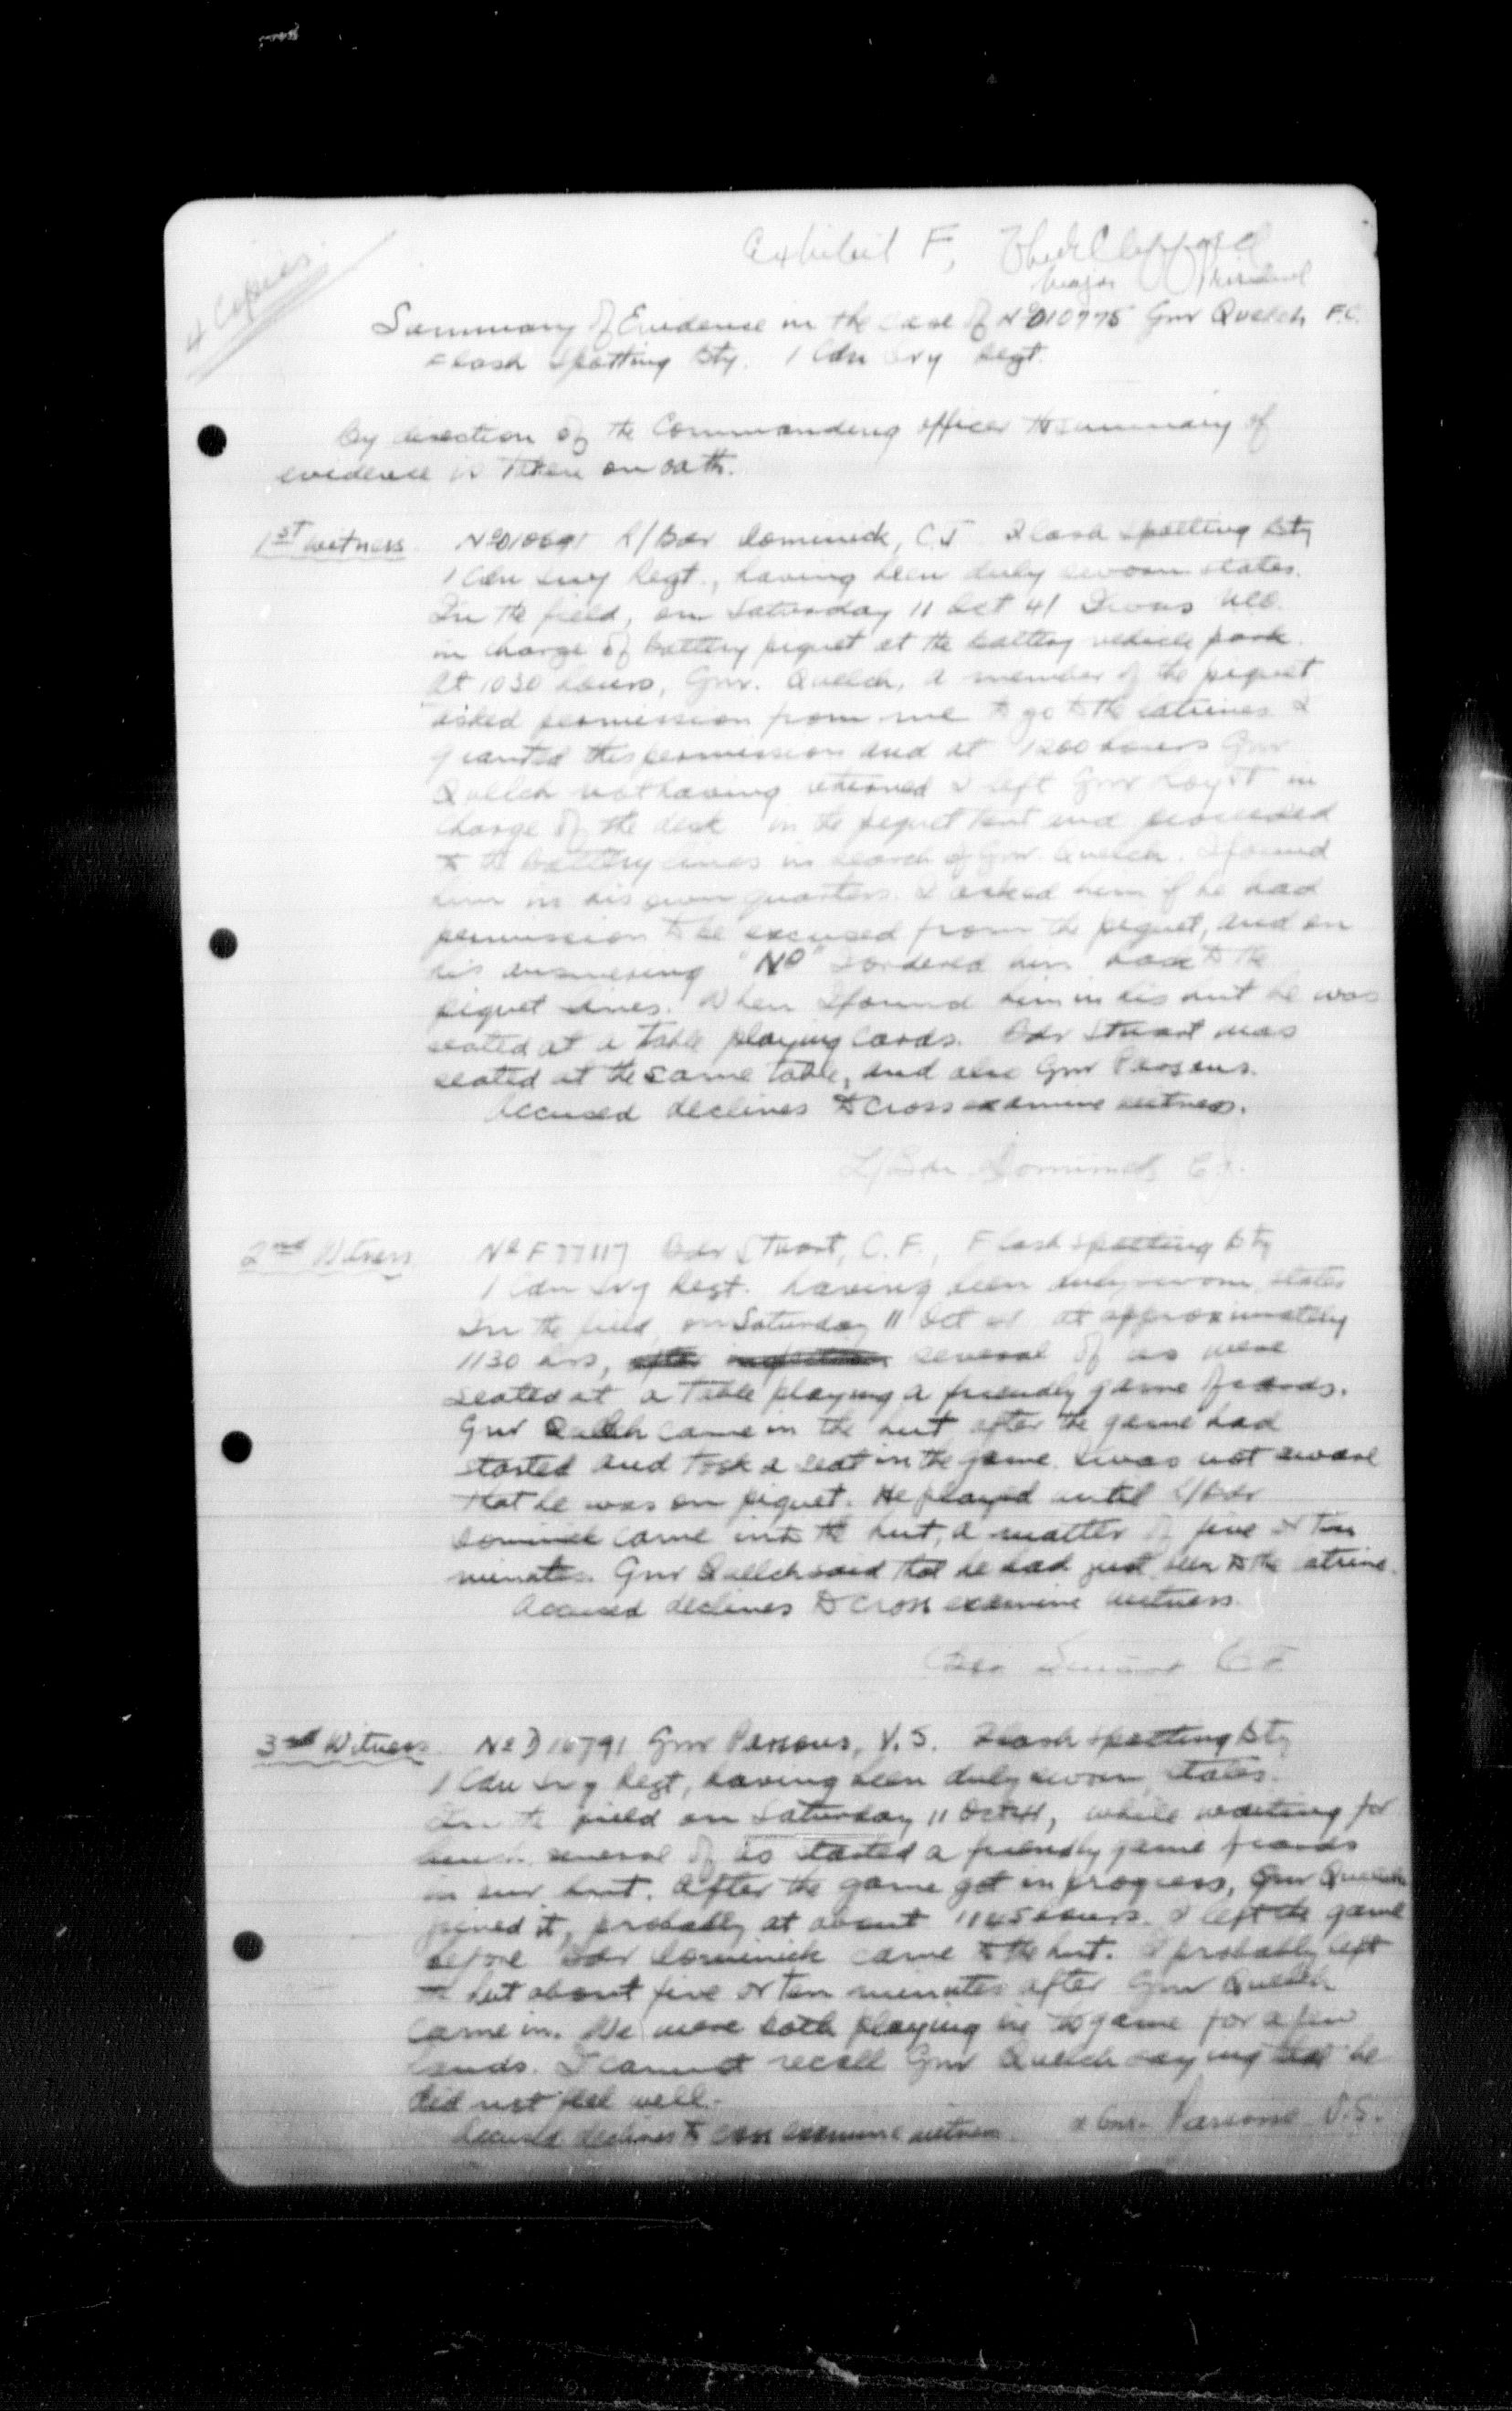 4 Copies
Exhibit F,
Major President
Summary of Evidence in the case of No D10775 Gnr Quelch F.C.
Flash Spotting Bty. 1 Cdn Svy Regt.
By direction of the Commanding officer the summary of
evidence is taken on oath.
1st witness No L/Bdr Dominick, C.J. Flash Spotting Bty
1 Cdn Svy Regt., having been duly sworn states.
In the field, on Saturday 11 Oct 41 I was NCO.
in charge of Battery piquet at the battery vehicle park.
At 1030 hours, Gnr. Quelch, a member of the piquet
asked permission from me to go to the latrines. I
granted this permission and at 1200 hours Gnr
Quelch not having returned I left Gnr in
charge of the desk in the piquet tent and proceeded
to the battery lines in search of Gnr. Quelch. I found
him in his own quarters. I asked him if he had
permission to be excused from the piquet, and on
his answering "No" I ordered him back to the
piquet lines. When I found him in his hut he was
seated at a table playing cards. Bdr Stuart was
seated at the same table, and also Gnr Parsons.
Accused declines to cross examine witness.
L/Bdr Dominick C.J.
2nd Witness No F77117 Bdr Stuart, C.F., Flash Spotting Bty
1 Cdn Svy Regt. having been duly sworn, states
In the field, on Saturday 11 Oct 41 at approximately
1130 hrs, several of us were
seated at a table playing a friendly game of cards.
Gnr Quelch came in the hut after the game had
started and took a seat in the game. I was not aware
that he was on piquet. He played until L/Bdr
Dominick came into the hut, a matter of five or ten
minutes. Gnr Quelch said that he had just been to the latrine.
Accused declines to cross examine witness.
Bdr Stuart C.F.
3rd Witness. No D10791 Gnr Parsons, V.S. Flash Spotting Bty
1 Cdn Svy Regt, having been duly sworn, states.
In the field on Saturday 11 Oct 41, while waiting for
lunch several of us started a friendly game of cards
in our hut. After the game got in progress, Gnr Quelch
joined it, probably at about 1145 hours. I left the game
before Bdr Dominick came to the hut. I probably left
the hut about five or ten minutes after Gnr Quelch
came in. We were both playing in the game for a few
hands. I cannot recall Gnr Quelch saying that he
did not feel well.
Accused declines to cross examine witness. Gnr. Parsons V.S.